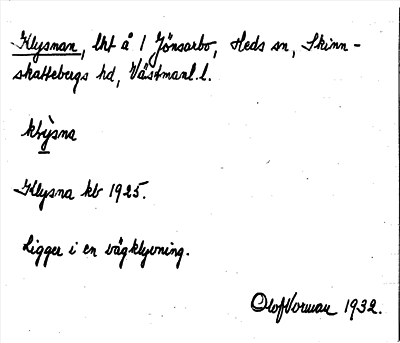 Klysnan, lht å 1 Jönsarbo, Heds sn, Skinn-
skattebergs hd, Västmanl. l.
klỳsna
Klysna kb 1925.
Ligger i en vägklyvning.
Olof Vorman 1932.